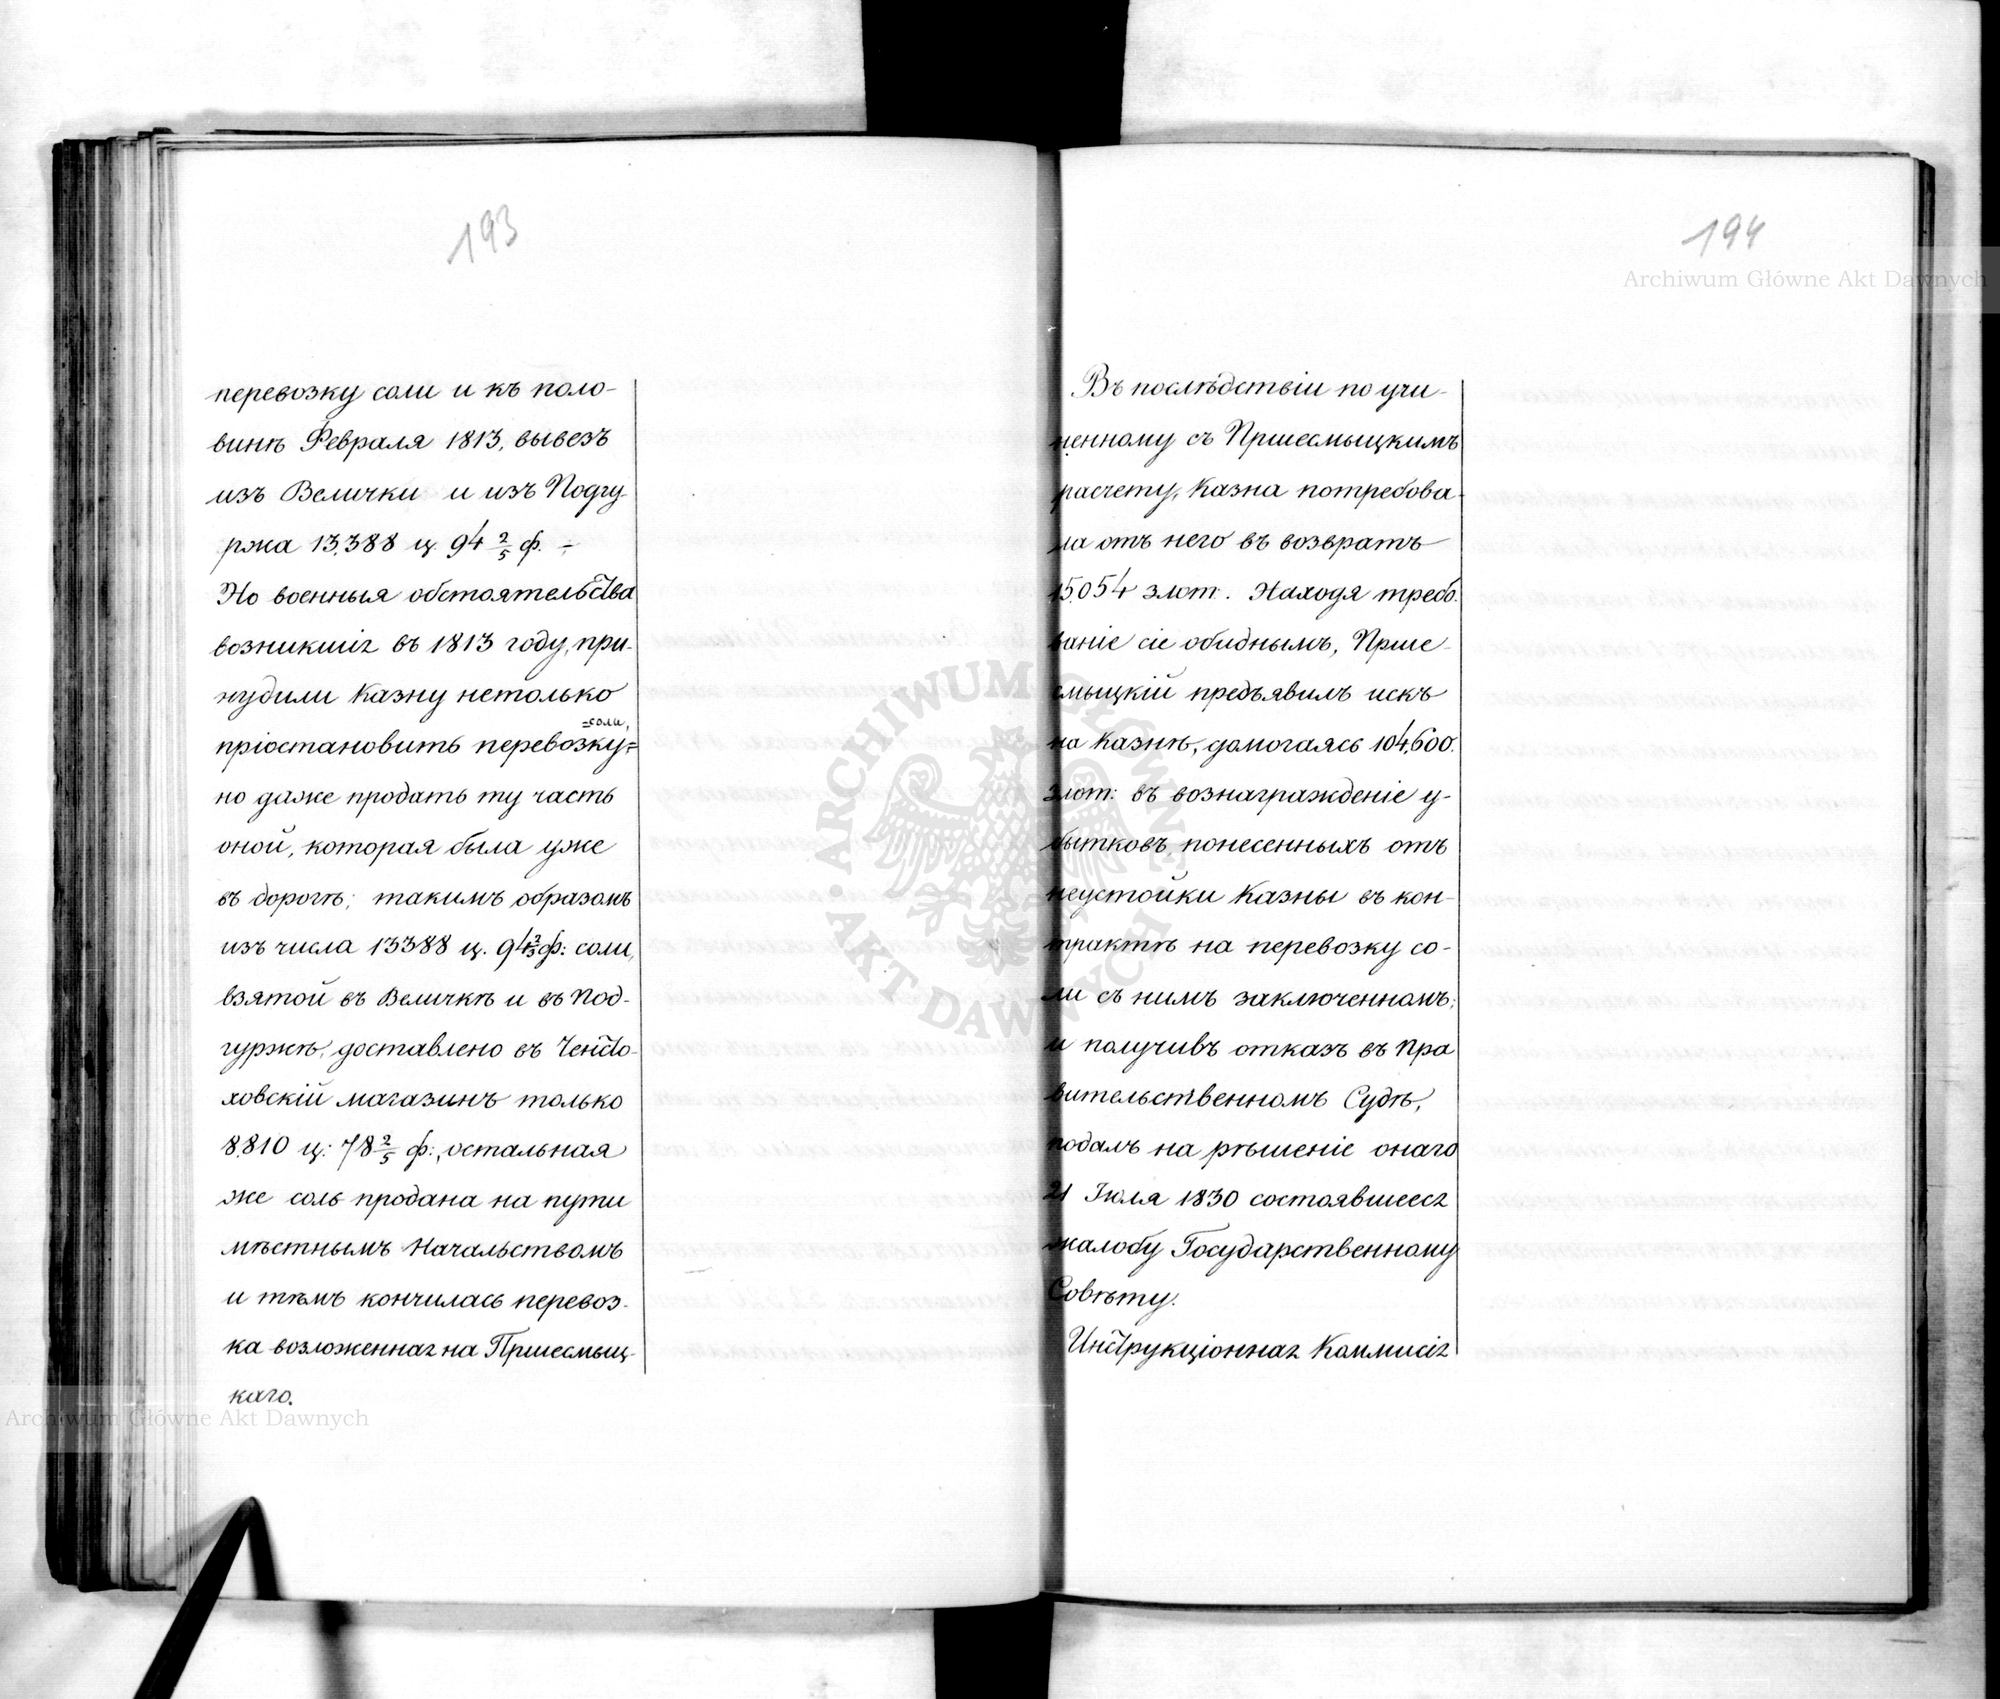 193
перевозку соли и къ поло-
винѣ Февраля 1813, вывезъ
изъ Велички и изъ Подгу-
ржа 13,388 ц. 94 2/5 ф. –
Но военныя обстоятельства
возникшія въ 1813 году, при-
нудили Казну нетолько
=соли,
пріостановить перевозку=
но даже продать ту часть
оной, которая была уже
въ дорогѣ; такимъ образомъ
изъ числа 13388 ц. 94 2/5 ф: соли,
взятой въ Величкѣ и въ Под-
гуржѣ, доставлено въ Ченсто-
ховскій магазинъ только
8,810 ц: 78 2/5 ф:, остальная
же соль продана на пути
мѣстнымъ Начальствомъ
и тѣмъ кончилась перевоз-
ка возложенная на Пршесмыц-
каго.
194
Въ послѣдствіи по учи-
ненному съ Пршесмыцкимъ
расчету, Казна потребова-
ла отъ него въ возвратъ
15,054 злот:. Находя требо-
ваніе сіе обиднымъ, Прше-
смыцкій предъявилъ искъ
на Казнѣ, домогаясь 104,600.
злот: въ вознагражденіе у-
бытковъ понесенныхъ отъ
неустойки Казны въ кон-
трактѣ на перевозку со-
ли съ нимъ заключенномъ;
и получивъ отказъ въ Пра
вительственномъ Судѣ,
подалъ на рѣшеніе онаго
21 Іюля 1830 состоявшееся
жалобу Государственному
Совѣту.
Инструкціонная Коммисія
Archiwum Główne Akt Dawnych
Archiwum Główne Akt Dawnych
ARCHIWUM GŁÓWNE AKT DAWNYCH